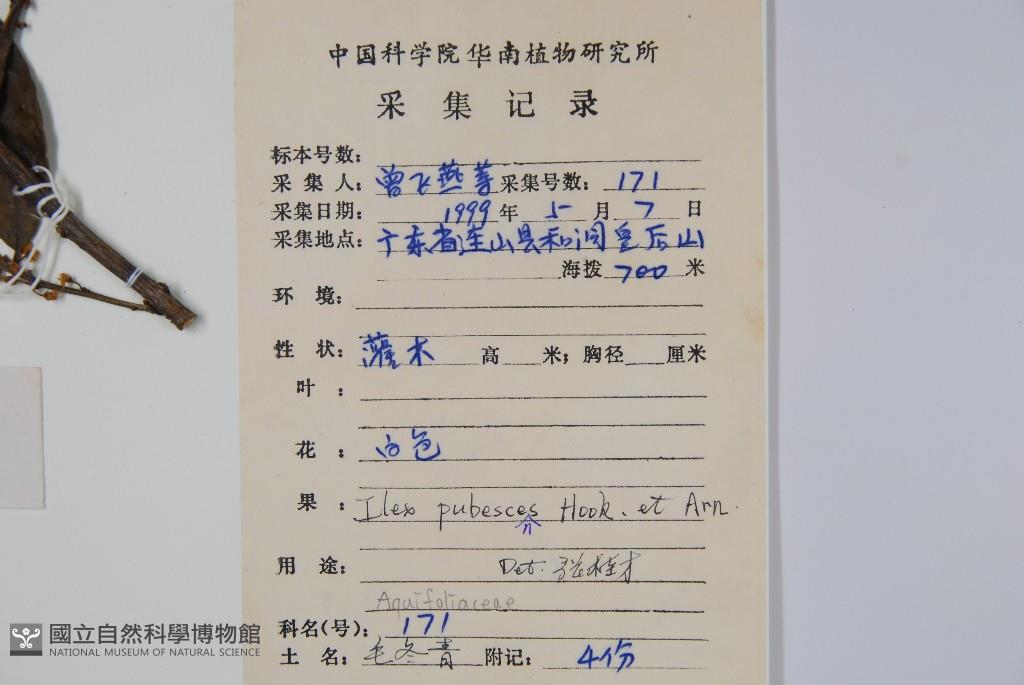 中国科学院华南植物研究所
采集记录
标本号数:
采集人: 曾飞燕等 采集号数: 171
采集日期: 1999 年 5 月 7 日
采集地点: 广东省连山县和洞皇后山
海拨 700 米
环境:
性状: 灌木 高 米; 胸径 厘米
叶:
花: 白色
果: Ilex pubesces Hook. et Arn.
n
用途: Det.
Aquifoliaceae
科名(号): 171
土名: 毛冬青 附记: 4份
國立自然科學博物館
NATIONAL MUSEUM OF NATURAL SCIENCE